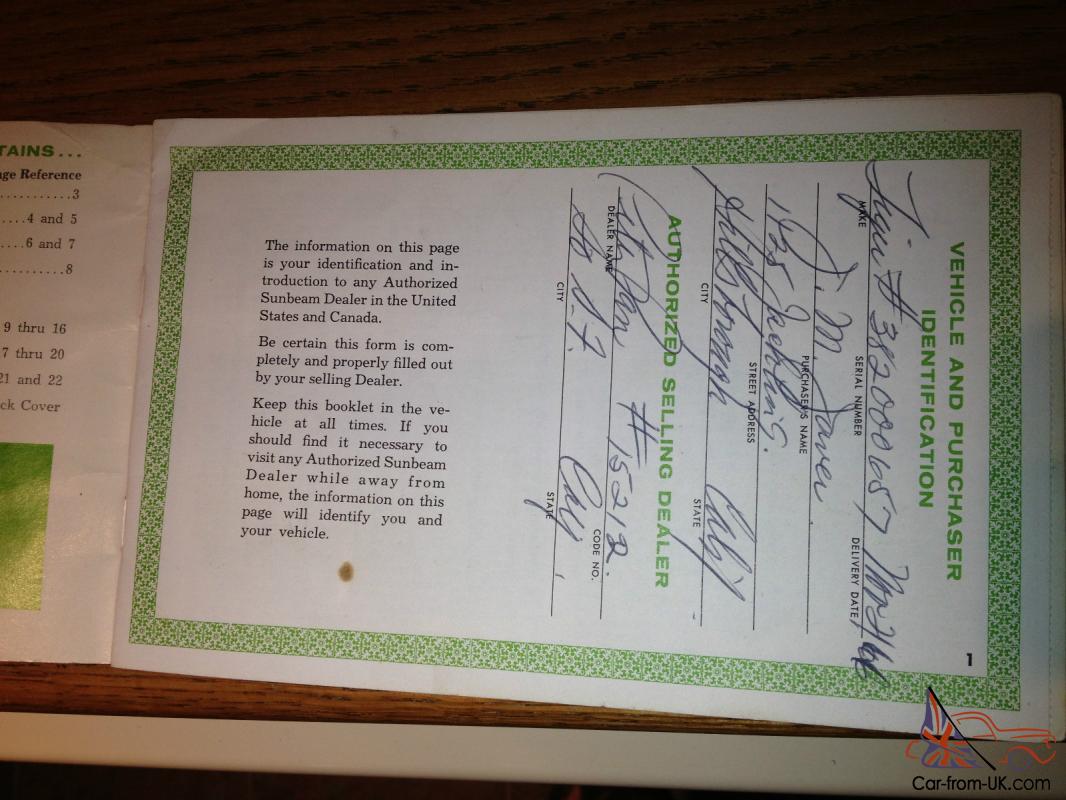 TAINS...
ge Reference
3
4 and 5
6 and 7
8
9 thru 16
7 thru 20
21 and 22
ck Cover
1
VEHICLE AND PURCHASER
IDENTIFICATION
# 382000657
MAKE SERIAL NUMBER DELIVERY DATE
J. M.
PURCHASER'S NAME
STREET ADDRESS
Calif
CITY STATE
AUTHORIZED SELLING DEALER
# 15212.
DEALER NAME CODE NO.
So. S. F. Calif.
CITY STATE
The information on this page
is your identification and in-
troduction to any Authorized
Sunbeam Dealer in the United
States and Canada.
Be certain this form is com-
pletely and properly filled out
by your selling Dealer.
Keep this booklet in the ve-
hicle at all times. If you
should find it necessary to
visit any Authorized Sunbeam
Dealer while away from
home, the information on this
page will identify you and
your vehicle.
Car-from-UK.com